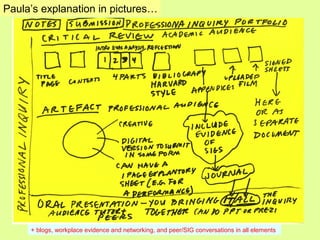 Paula's explanation in pictures…
NOTES SUBMISSION PROFESSIONAL INQUIRY PORTFOLIO
CRITICAL REVIEW ACADEMIC AUDIENCE
INTRO EVAL ANALYSIS REFLECTION
1 2 3 4
TITLE PAGE
CONTENTS
4 PARTS
BIBLIOGRAPHY
HARVARD
STYLE
APPENDICES
UPLOADED
FILM
SIGNED
SHEETS
HERE
OR AS
SEPARATE
DOCUMENT
PROFESSIONAL INQUIRY
ARTEFACT PROFESSIONAL AUDIENCE
CREATIVE
DIGITAL
VERSION TO SUBMIT
IN SOME FORM
CAN HAVE A
1 PAGE EXPLANTORY
SHEET (E.G. FOR
A PERFORMANCE)
INCLUDE
EVIDENCE
OF
SIGS
JOURNAL
ORAL PRESENTATION - YOU BRINGING IT ALL THE INQUIRY
AUDIENCE PEERS TOGETHER CAN DO PPT OR PREZI
+ blogs, workplace evidence and networking, and peer/SIG conversations in all elements